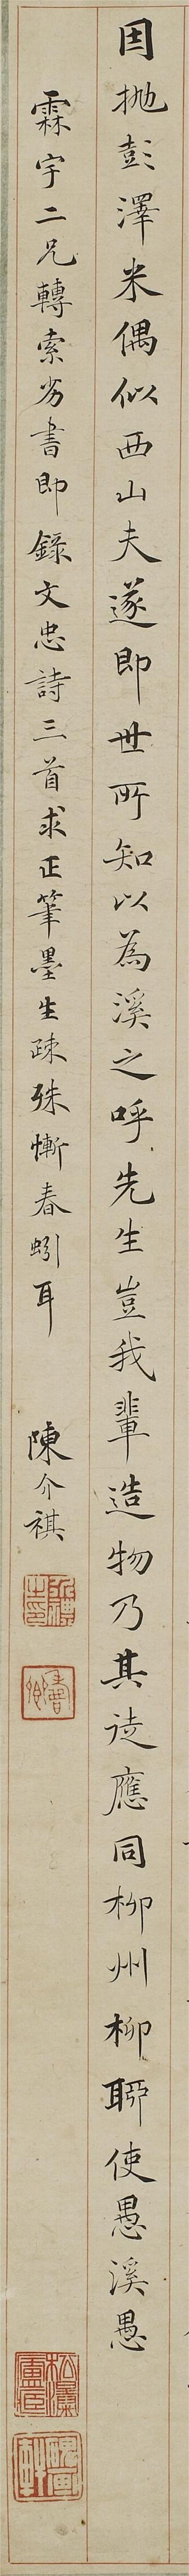 因抛彭澤米偶似西山夫遂即世所知以為溪之呼先生豈我輩造物乃其徒應同柳州柳聊使愚溪愚
霖宇二兄轉索劣書即錄文忠詩三首求正筆墨生疎殊慚春蚓耳 陳介祺